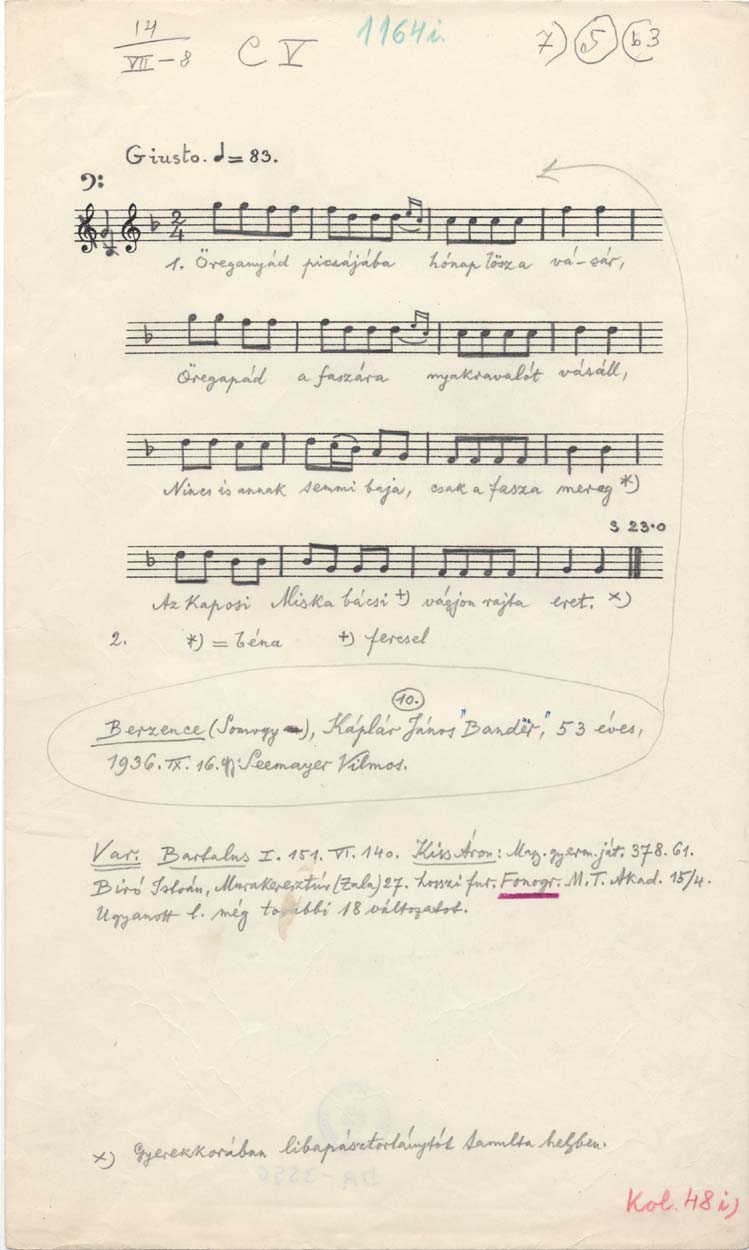 14
VII-8
C V
1164i.
7) 5 b3
Giusto. = 83.
2
4
1. Öreganyád picsájába hónap lösz a vá-sár,
Öregapád a faszára nyakravalót vásáll,
Nincs is annak semmi baja, csak a fasza mereg *)
S 23.0
Az Kaposi Miska bácsi +) vágjon rajta eret. x)
2. *) = béna +) fercsel
10.
Berzence (Somogy), Káplár János "Bandër", 53 éves,
1936. IX. 16. gy: Seemayer Vilmos.
Var. Bartalus I. 151. VI. 140. Kiss Áron: Mag. gyerm. ját. 378. 61.
Biró István, Murakeresztúr (Zala) 27. hosszi fur. Fonogr. M. T. Akad. 15/4.
Ugyanott l. még további 18 változatot.
x) Gyerekkorában libapásztorlánytól tanulta helyben.
Kol. 48 i)